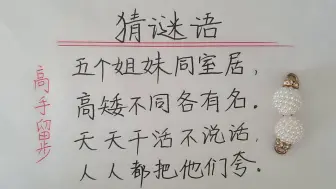 猜谜语
五个姐妹同室居，
高矮不同各有名。
天天干活不说话，
人人都把他们夸。
高手留步